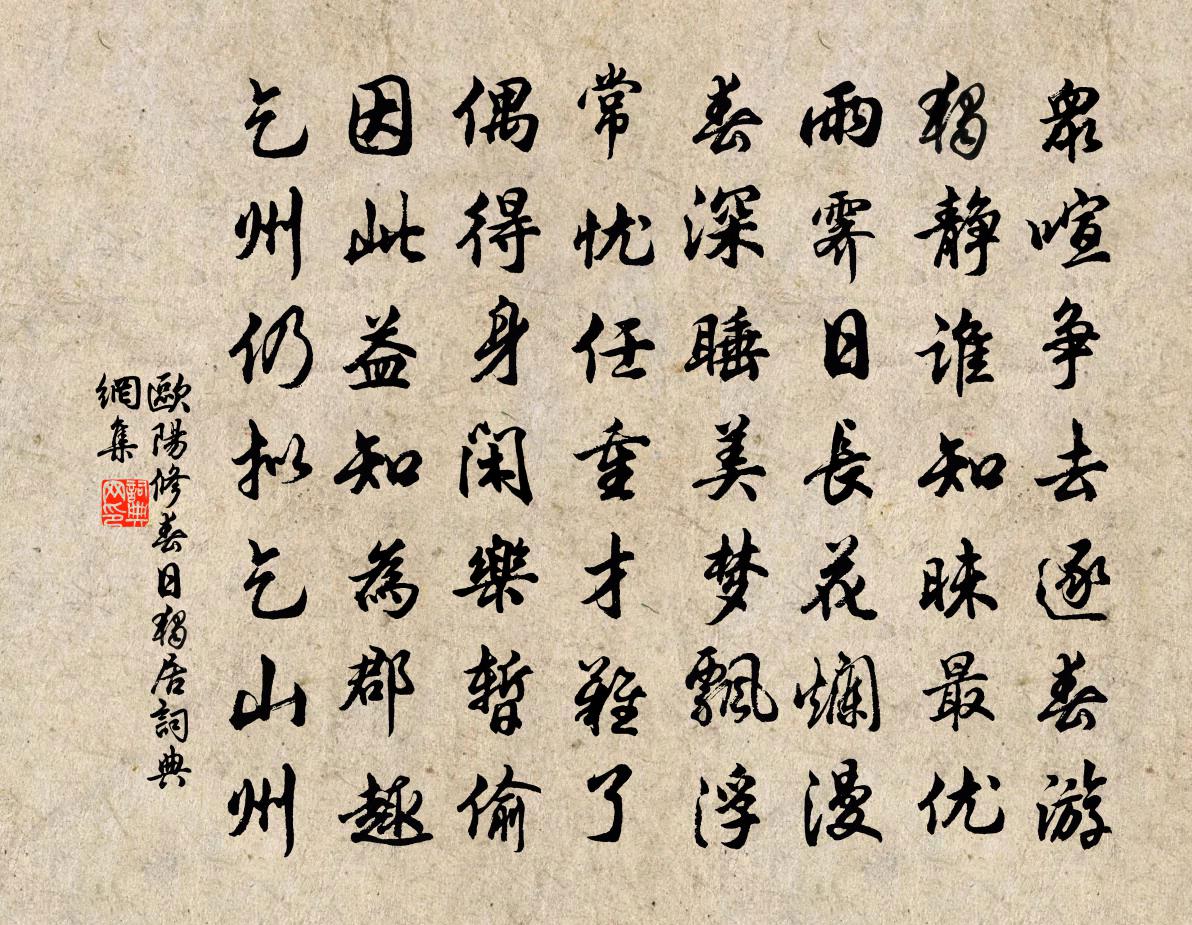 眾喧争去逐春游
獨靜谁知味最优
雨霁日長花爛漫
春深睡美梦飄浮
常忧任重才難了
偶得身閑樂暫偷
因此益知為郡趣
乞州仍拟乞山州
歐陽修春日獨居詞典
網集
詞典
网印